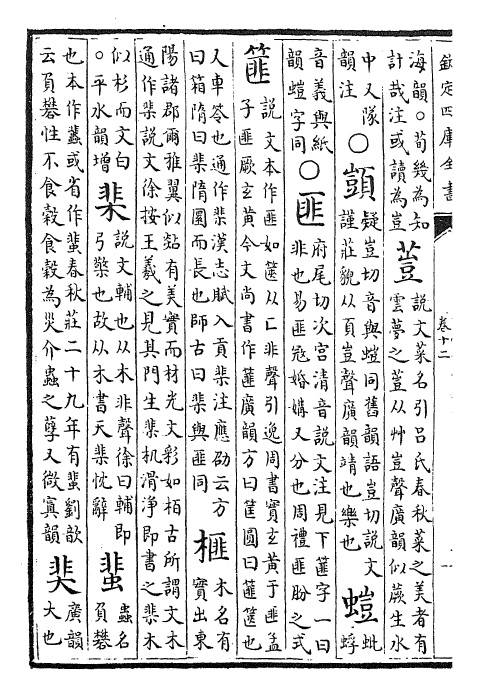 欽定四庫全書 卷十二
海韻○荀幾為知
計哉注或讀為豈
䔇
說文菜名引吕氏春秋菜之美者有
雲夢之䔇从艸豈聲廣韻似蕨生水
中又隊
韻注
○顗
疑豈切音與螘同舊韻語豈切說文
謹莊貌从頁豈聲廣韻靖也樂也
螘
蚍
蜉
音義與紙
韻螘字同
○匪
府尾切次宫清音說文注見下篚字一曰
非也易匪宼婚媾又分也周禮匪朌之式
篚
說文本作匪如篋从匚非聲引逸周書實玄黄于匪孟
子匪厥玄黄今文尚書作篚廣韻方曰筐圓曰篚篋也
又車笭也通作棐漢志賦入貢棐注應劭云方
曰箱隋曰棐隋圜而長也師古曰棐與匪同
榧
木名有
實出東
陽諸郡爾雅翼似煔有美實而材光文彩如栢古所謂文木
通作棐說文徐按王羲之見其門生棐机滑浄即書之棐木
似杉而文白
○平水韻增
棐
說文輔也从木非聲徐曰輔即
弓檠也故从木書天棐忱辭
蜚
蟲名
負礬
也本作蟲或省作蜚春秋莊二十九年有蜚劉歆
云負礬性不食榖食榖為災介蟲之孽又微寘韻
奜
廣韻
大也